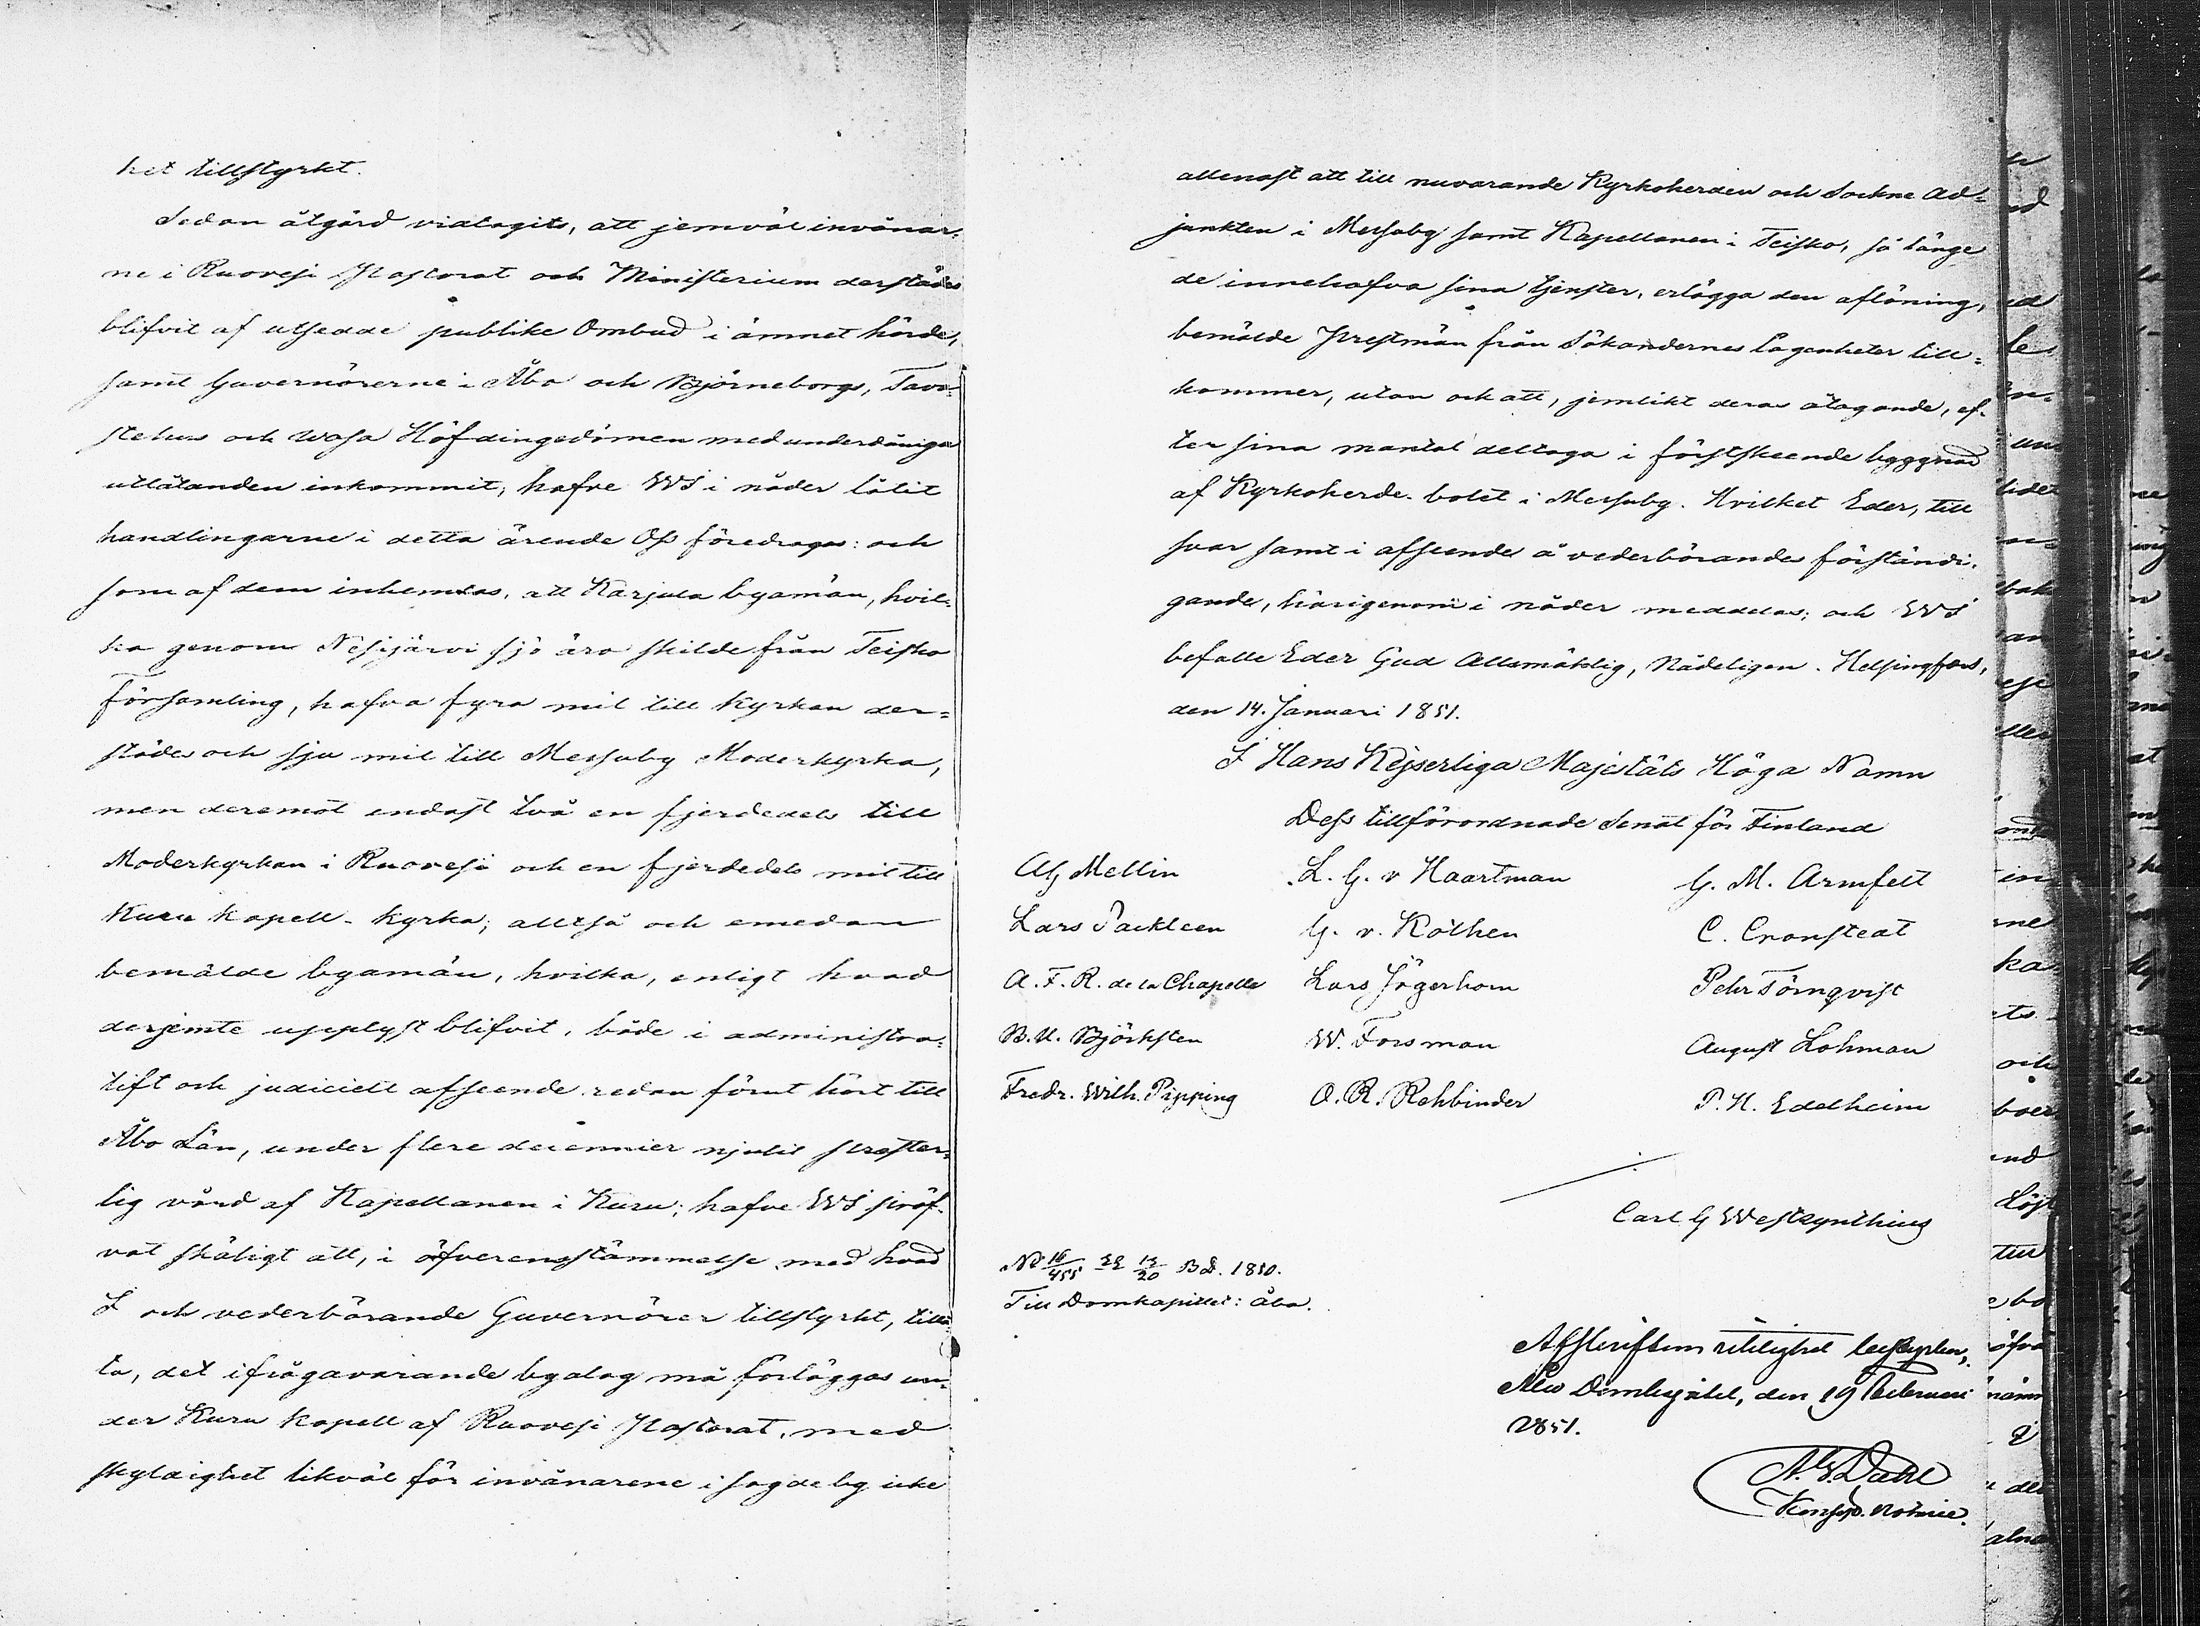 het tillstyrkt.
Sedan åtgärd vidtagits, att jemväl invånar-
ne i Ruovesi Pastorat och Ministerium derstädes
blifvit af utsedde publike Ombud i ämnet hörde,
samt Guvernörerne i Åbo och Björneborgs, Tava-
stehus och Wasa Höfdingedömen med underdåniga
utlåtanden inkommit, hafve WI i nåder låtit
handlingarne i detta ärende Oss föredragas: och
som af dem inhemtas, att Karjula byamän, hvil-
ka genom Nesijärvi sjö äro skilde från Teisko
Församling, hafva fyra mil till Kyrkan der-
städes och sju mil till Messuby Moderkyrka,
men deremot endast två en fjerdedels till
Moderkyrkan i Ruovesi och en fjerdedels mil till
Kuru Kapell-kyrka; alltså och emedan
bemälde byamän, hvilka, enligt hvad
derjemte upplyst blifvit, både i administra-
tift och judicielt afseende redan förut hört till
Åbo Län, under flere decennier njutit prester-
lig vård af Kapellanen i Kuru; hafve WI pröf-
vat skäligt att, i öfverensstämmelse med hvad
I och vederbörande Guvernörer tillstyrkt, tillå-
ta, det ifrågavarande byalag må förläggas un-
der Kuru Kapell af Ruovesi Pastorat, med
skyldighet likväl för invånarene i sagde by icke
allenast att till nuvarande Kyrkoherden och Sockne Ad-
junkten i Messuby samt Kapellanen i Teisko, så länge
de innehafva sina tjenster, erlägga den aflöning,
bemälde Prestmän från Sökandernes lägenheter till-
kommer, utan och att, jemlikt deras åtagande, ef-
ter sina mantal deltaga i förstskeende byggnad
af Kyrkoherde-bolet i Messuby. Hvilket Eder, till
svar samt i afseende å vederbörandes förständi-
gande, härigenom i nåder meddelas; och WI
befalle Eder Gud Allsmäktig, Nådeligen. Helsingfors,
den 14. Januari 1851.
I Hans Kejserliga Majestäts Höga Namn
Dess tillförordnade Senat för Finland
AG Mellin L. G. v Haartman G. M. Armfelt
Lars Sackleen G. v. Köthen C. Cronstedt
A. F. R. de la Chapelle Lars Jägerhorn Pehr Törnqvist
B. U. Björksten W. Forsman August Lohman
Fredr. Wilh. Pipping O. R. Rehbinder P. H. Edelheim
Carl G Westzynthius
No 16/455 12/20 BD. 1850.
Till Domkapitlet i Åbo.
Afskriftens riktighet bestyrker,
Åbo Domkapitel, den 19 Februari
1851.
A. G. Dahl
Konsist. Notarie.